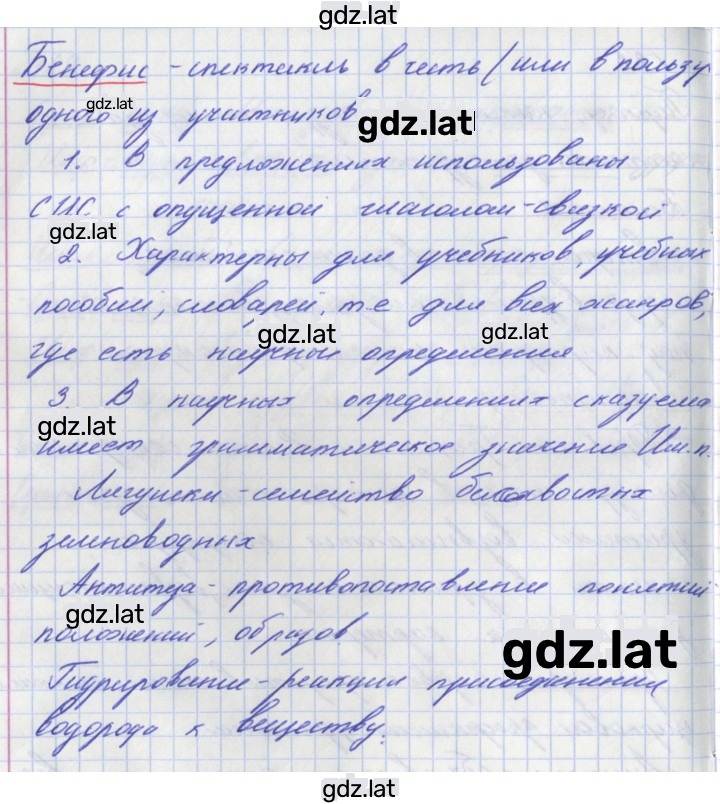 gdz.lat
Бенефис - спектакль в честь (или в пользу
gdz.lat
одного из участников
gdz.lat
1. В предложениях использованы
СИС. с опущенной глаголом-связкой
gdz.lat
2. Характерны для учебников, учебных
пособий, словарей, т.е для всех жанров,
gdz.lat gdz.lat
где есть научные определения
3. В научных определениях сказуема
gdz.lat
имеет грамматическое значение Им.п.
Лягушки - семейство бесхвостых
земноводных
Антитеза - противопоставление понятий
gdz.lat
положений, образов
gdz.lat
Гидрирование - реакции присоединения
водорода к веществу.
gdz.lat